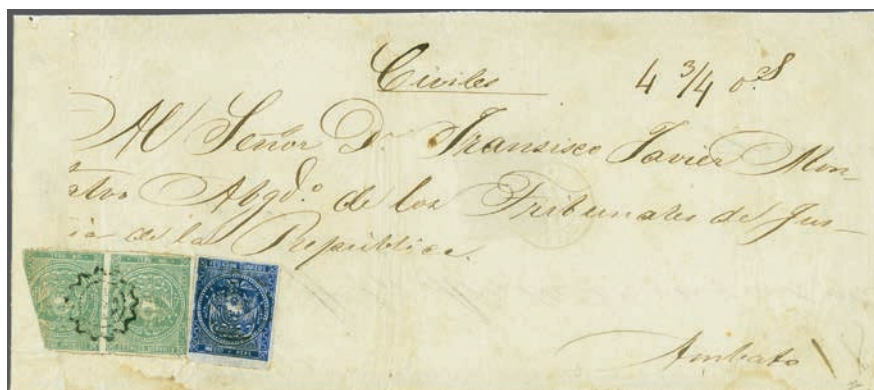 Civiles 4 3/4 os
Al Señor Dr Fransisco Javier Mon-
tvo Abgdo. de los Tribunales de Jus-
ia de la República.
Ambato